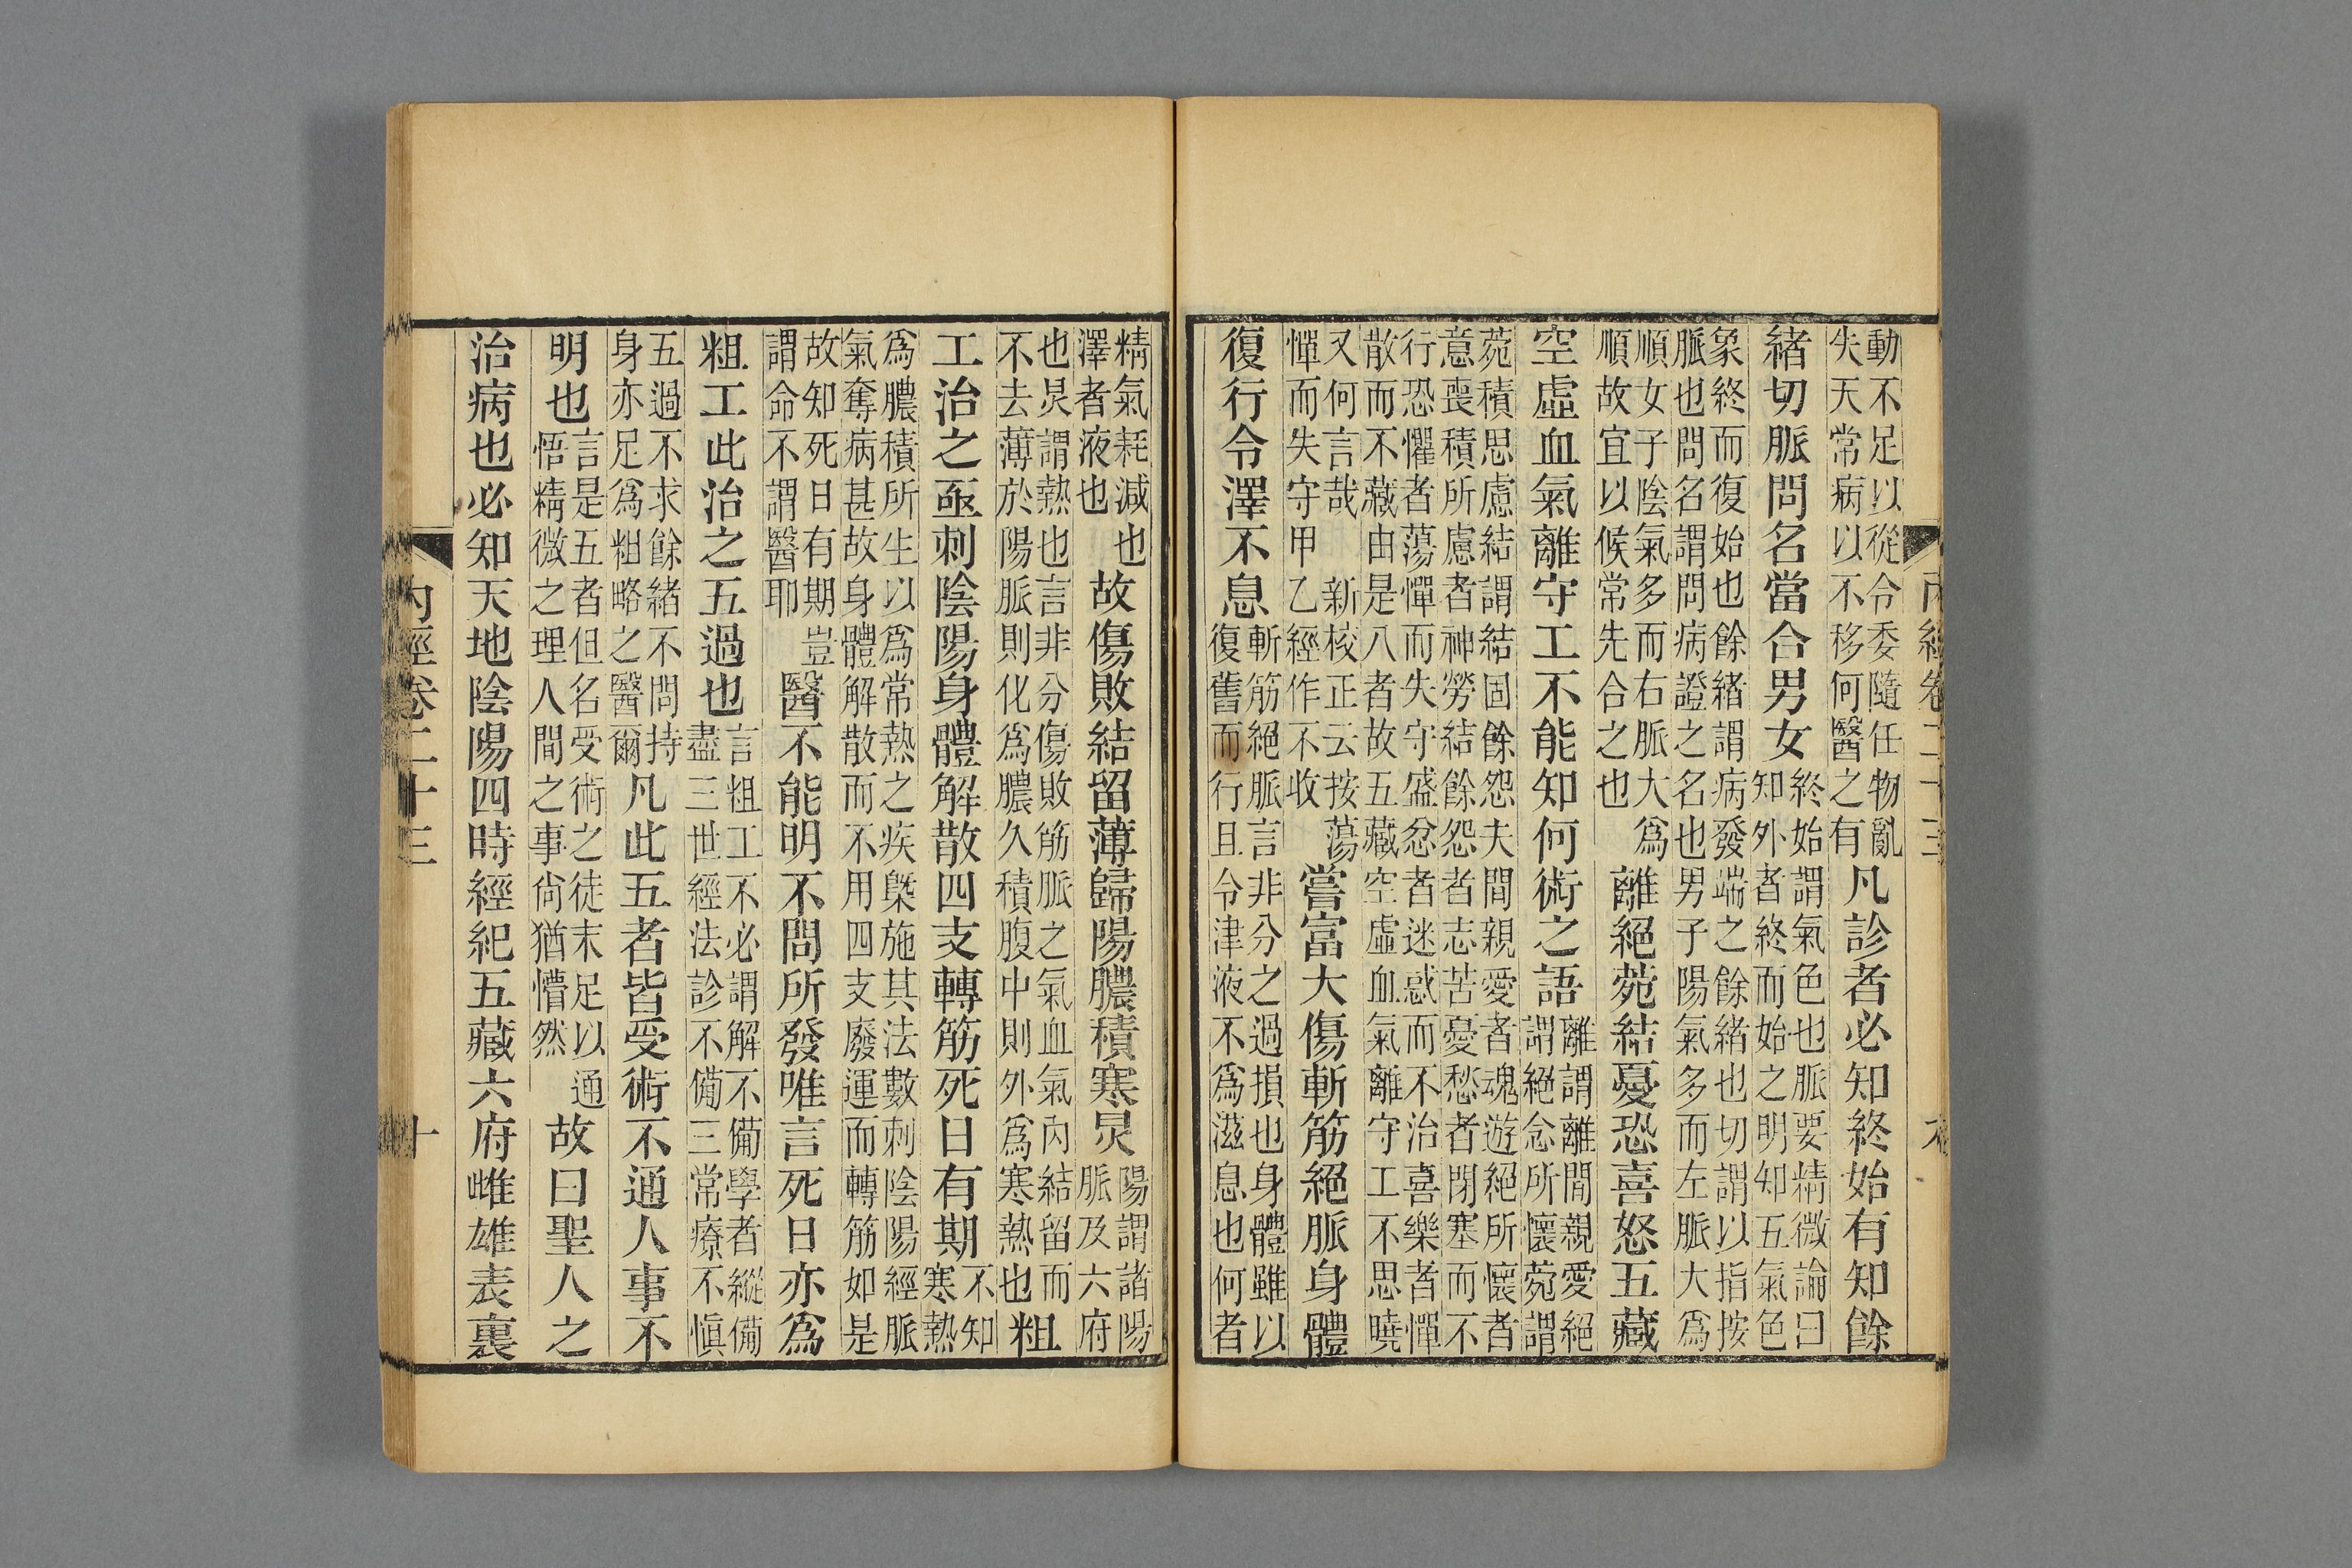 內經卷二十三
動不足以從令委隨任物亂
失天常病以不移何醫之有
凡診者必知終始有知餘
緒切脈問名當合男女
終始謂氣色也脈要精微論曰
知外者終而始之明知五氣色
象終而復始也餘緒謂病發端之餘緒也切謂以指按
脈也問名謂問病證之名也男子陽氣多而左脈大爲
順女子陰氣多而右脈大爲
順故宜以候常先合之也
離絕菀結憂恐喜怒五藏
空虛血氣離守工不能知何術之語
離謂離間親愛絕
謂絕念所懷菀謂
菀積思慮結謂結固餘怨夫間親愛者魂遊絕所懷者
意喪積所慮者神勞結餘怨者志苦憂愁者閉塞而不
行恐懼者蕩憚而失守盛忿者迷惑而不治喜樂者憚
散而不藏由是八者故五藏空虛血氣離守工不思曉
又何言哉 新校正云按蕩
憚而失守甲乙經作不收
嘗富大傷斬筋絕脈身體
復行令澤不息
斬筋絕脈言非分之過損也身體雖以
復舊而行且令津液不爲滋息也何者
精氣耗減也
澤者液也
故傷敗結留薄歸陽膿積寒炅
陽謂諸陽
脈及六府
也炅謂熱也言非分傷敗筋脈之氣血氣內結留而
不去薄於陽脈則化爲膿久積腹中則外爲寒熱也
粗
工治之亟刺陰陽身體解散四支轉筋死日有期
不知
寒熱
爲膿積所生以爲常熱之疾槩施其法數刺陰陽經脈
氣奪病甚故身體解散而不用四支廢運而轉筋如是
故知死日有期豈
謂命不謂醫耶
醫不能明不問所發唯言死日亦爲
粗工此治之五過也
言粗工不必謂解不備學者縱備
盡三世經法診不備三常療不愼
五過不求餘緒不問持
身亦足爲粗略之醫爾
凡此五者皆受術不通人事不
明也
言是五者但名受術之徒未足以通
悟精微之理人間之事尚猶懵然
故曰聖人之
治病也必知天地陰陽四時經紀五藏六府雌雄表裏
內經卷二十三
十